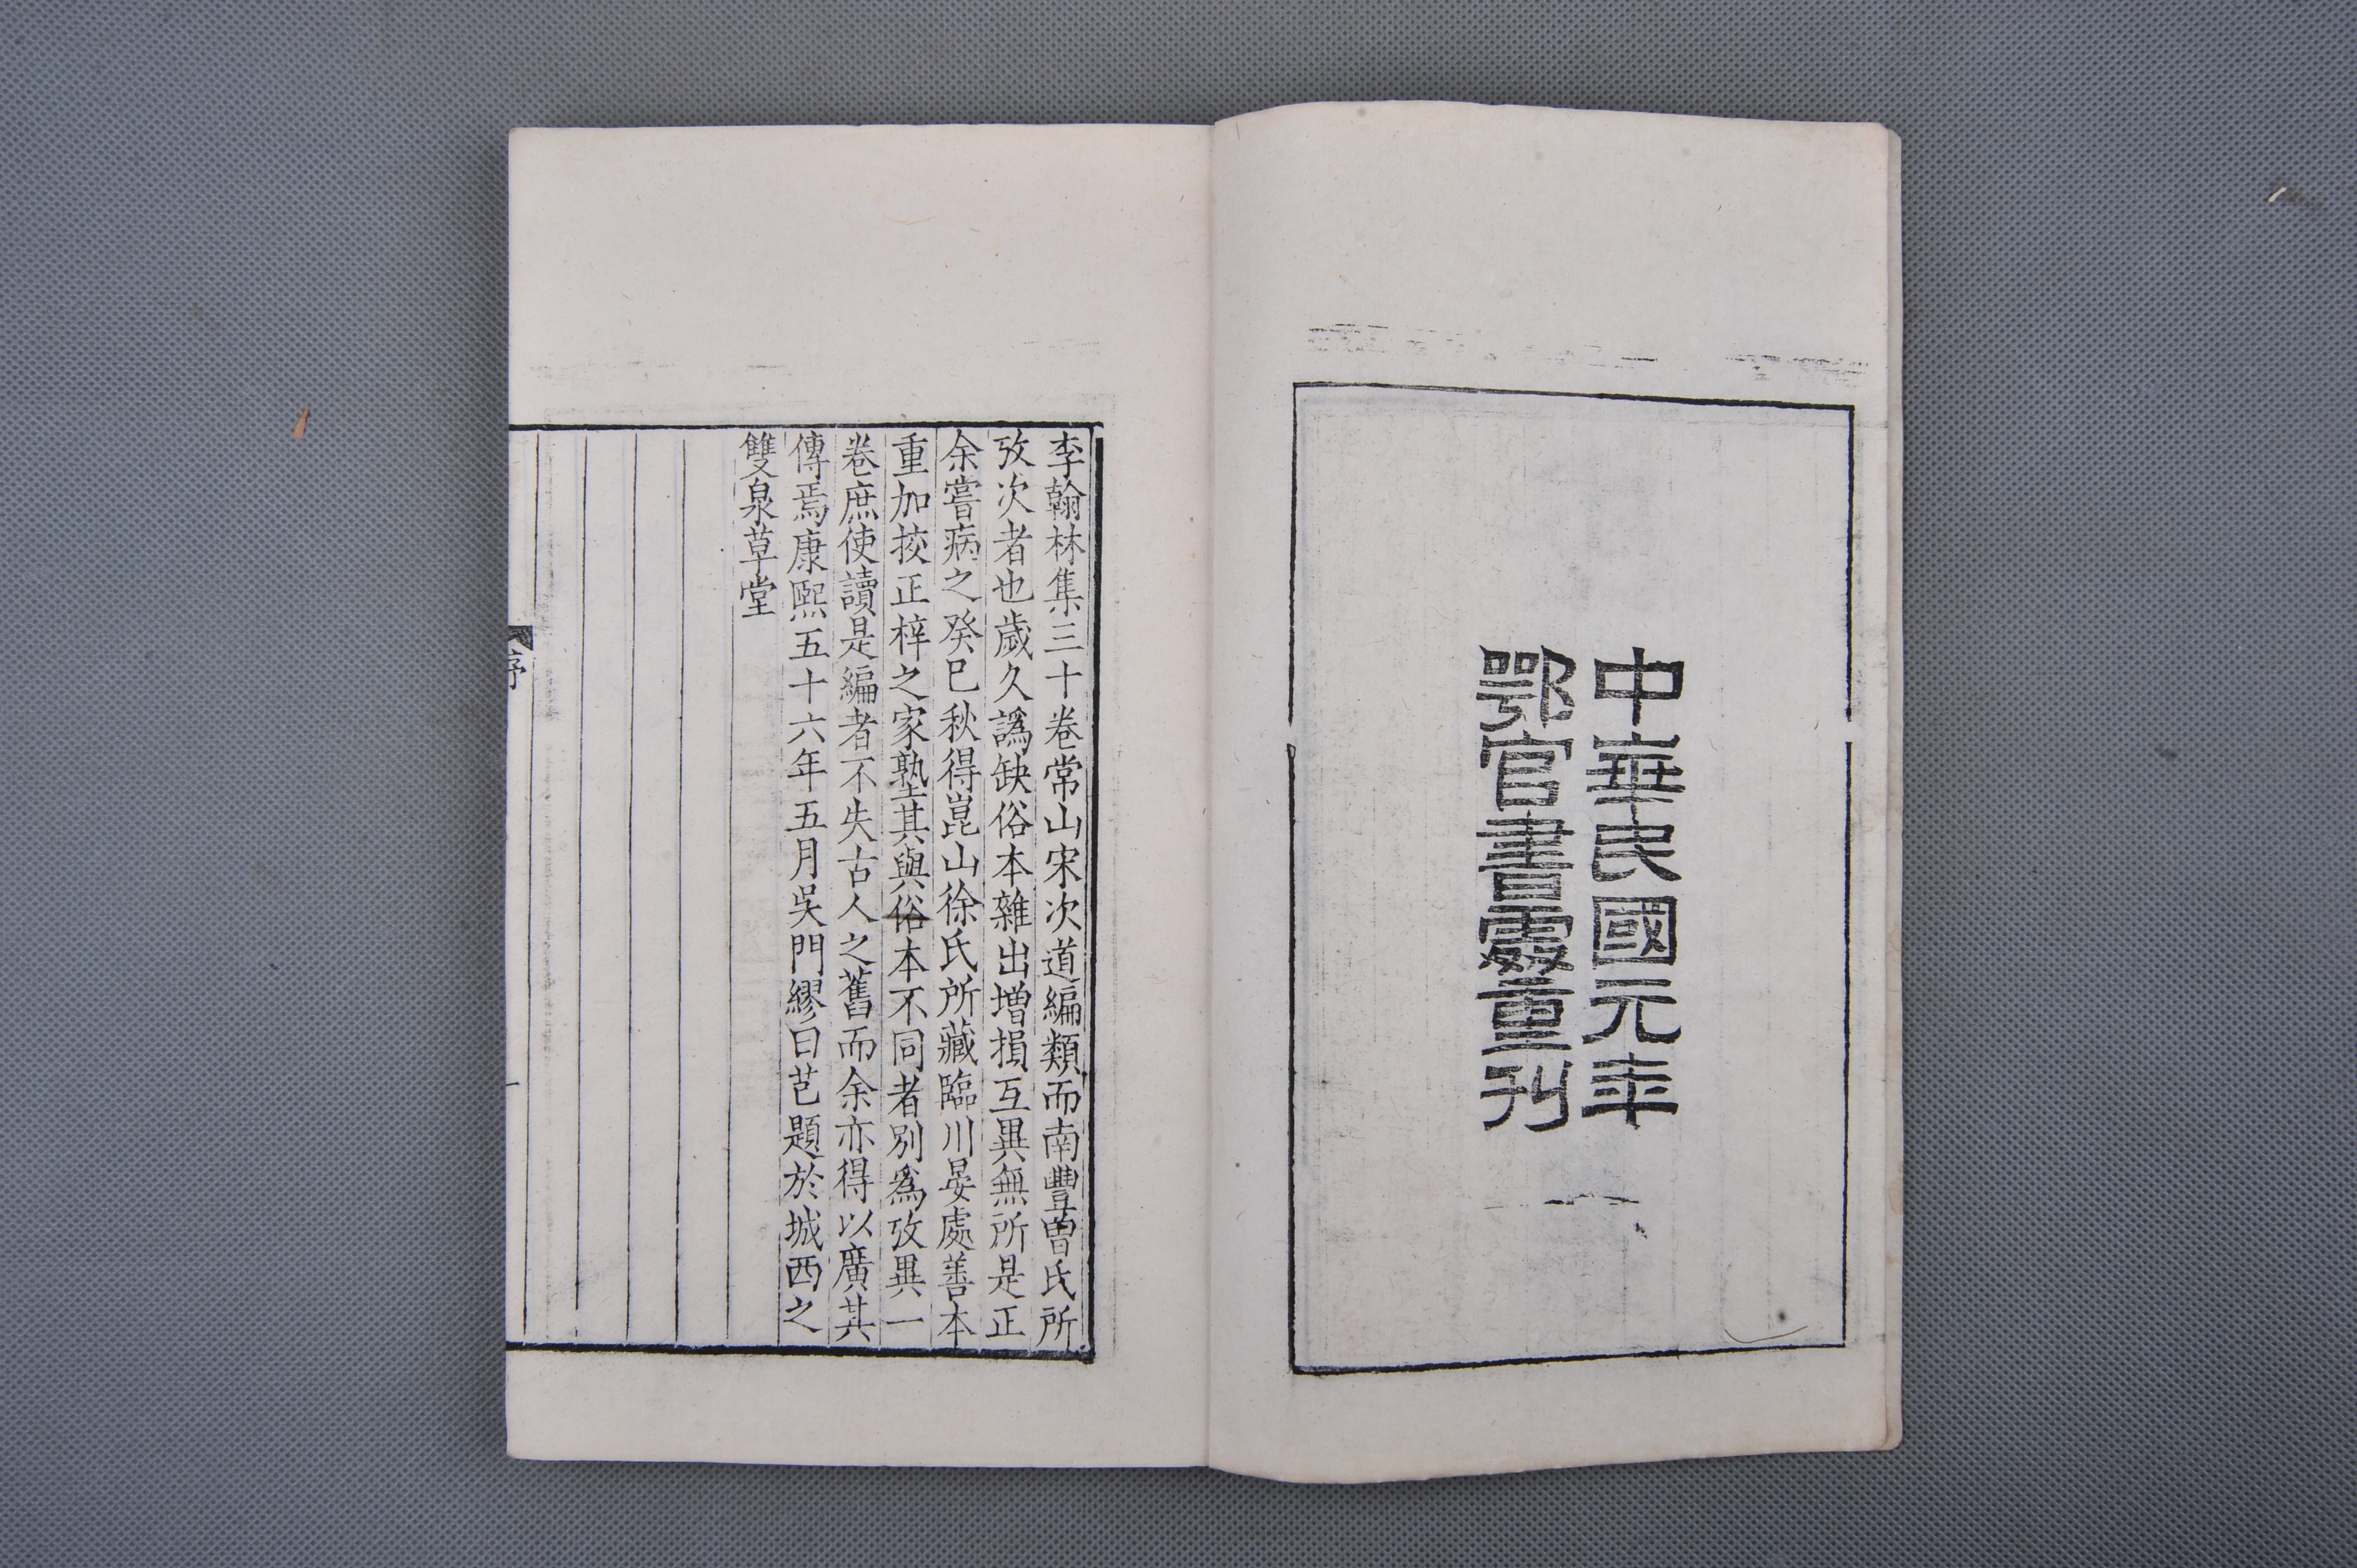 中華民國元年
鄂官書處重刊
李翰林集三十卷常山宋次道編類而南豐曾氏所
攷次者也歲久譌缺俗本雜出増損互異無所是正
余嘗病之癸巳秋得崑山徐氏所藏臨川晏處善本
重加挍正梓之家塾其與俗本不同者別爲攷異一
卷庶使讀是編者不失古人之舊而余亦得以廣其
傳焉康熙五十六年五月吳門繆曰芑題於城西之
雙泉草堂
序